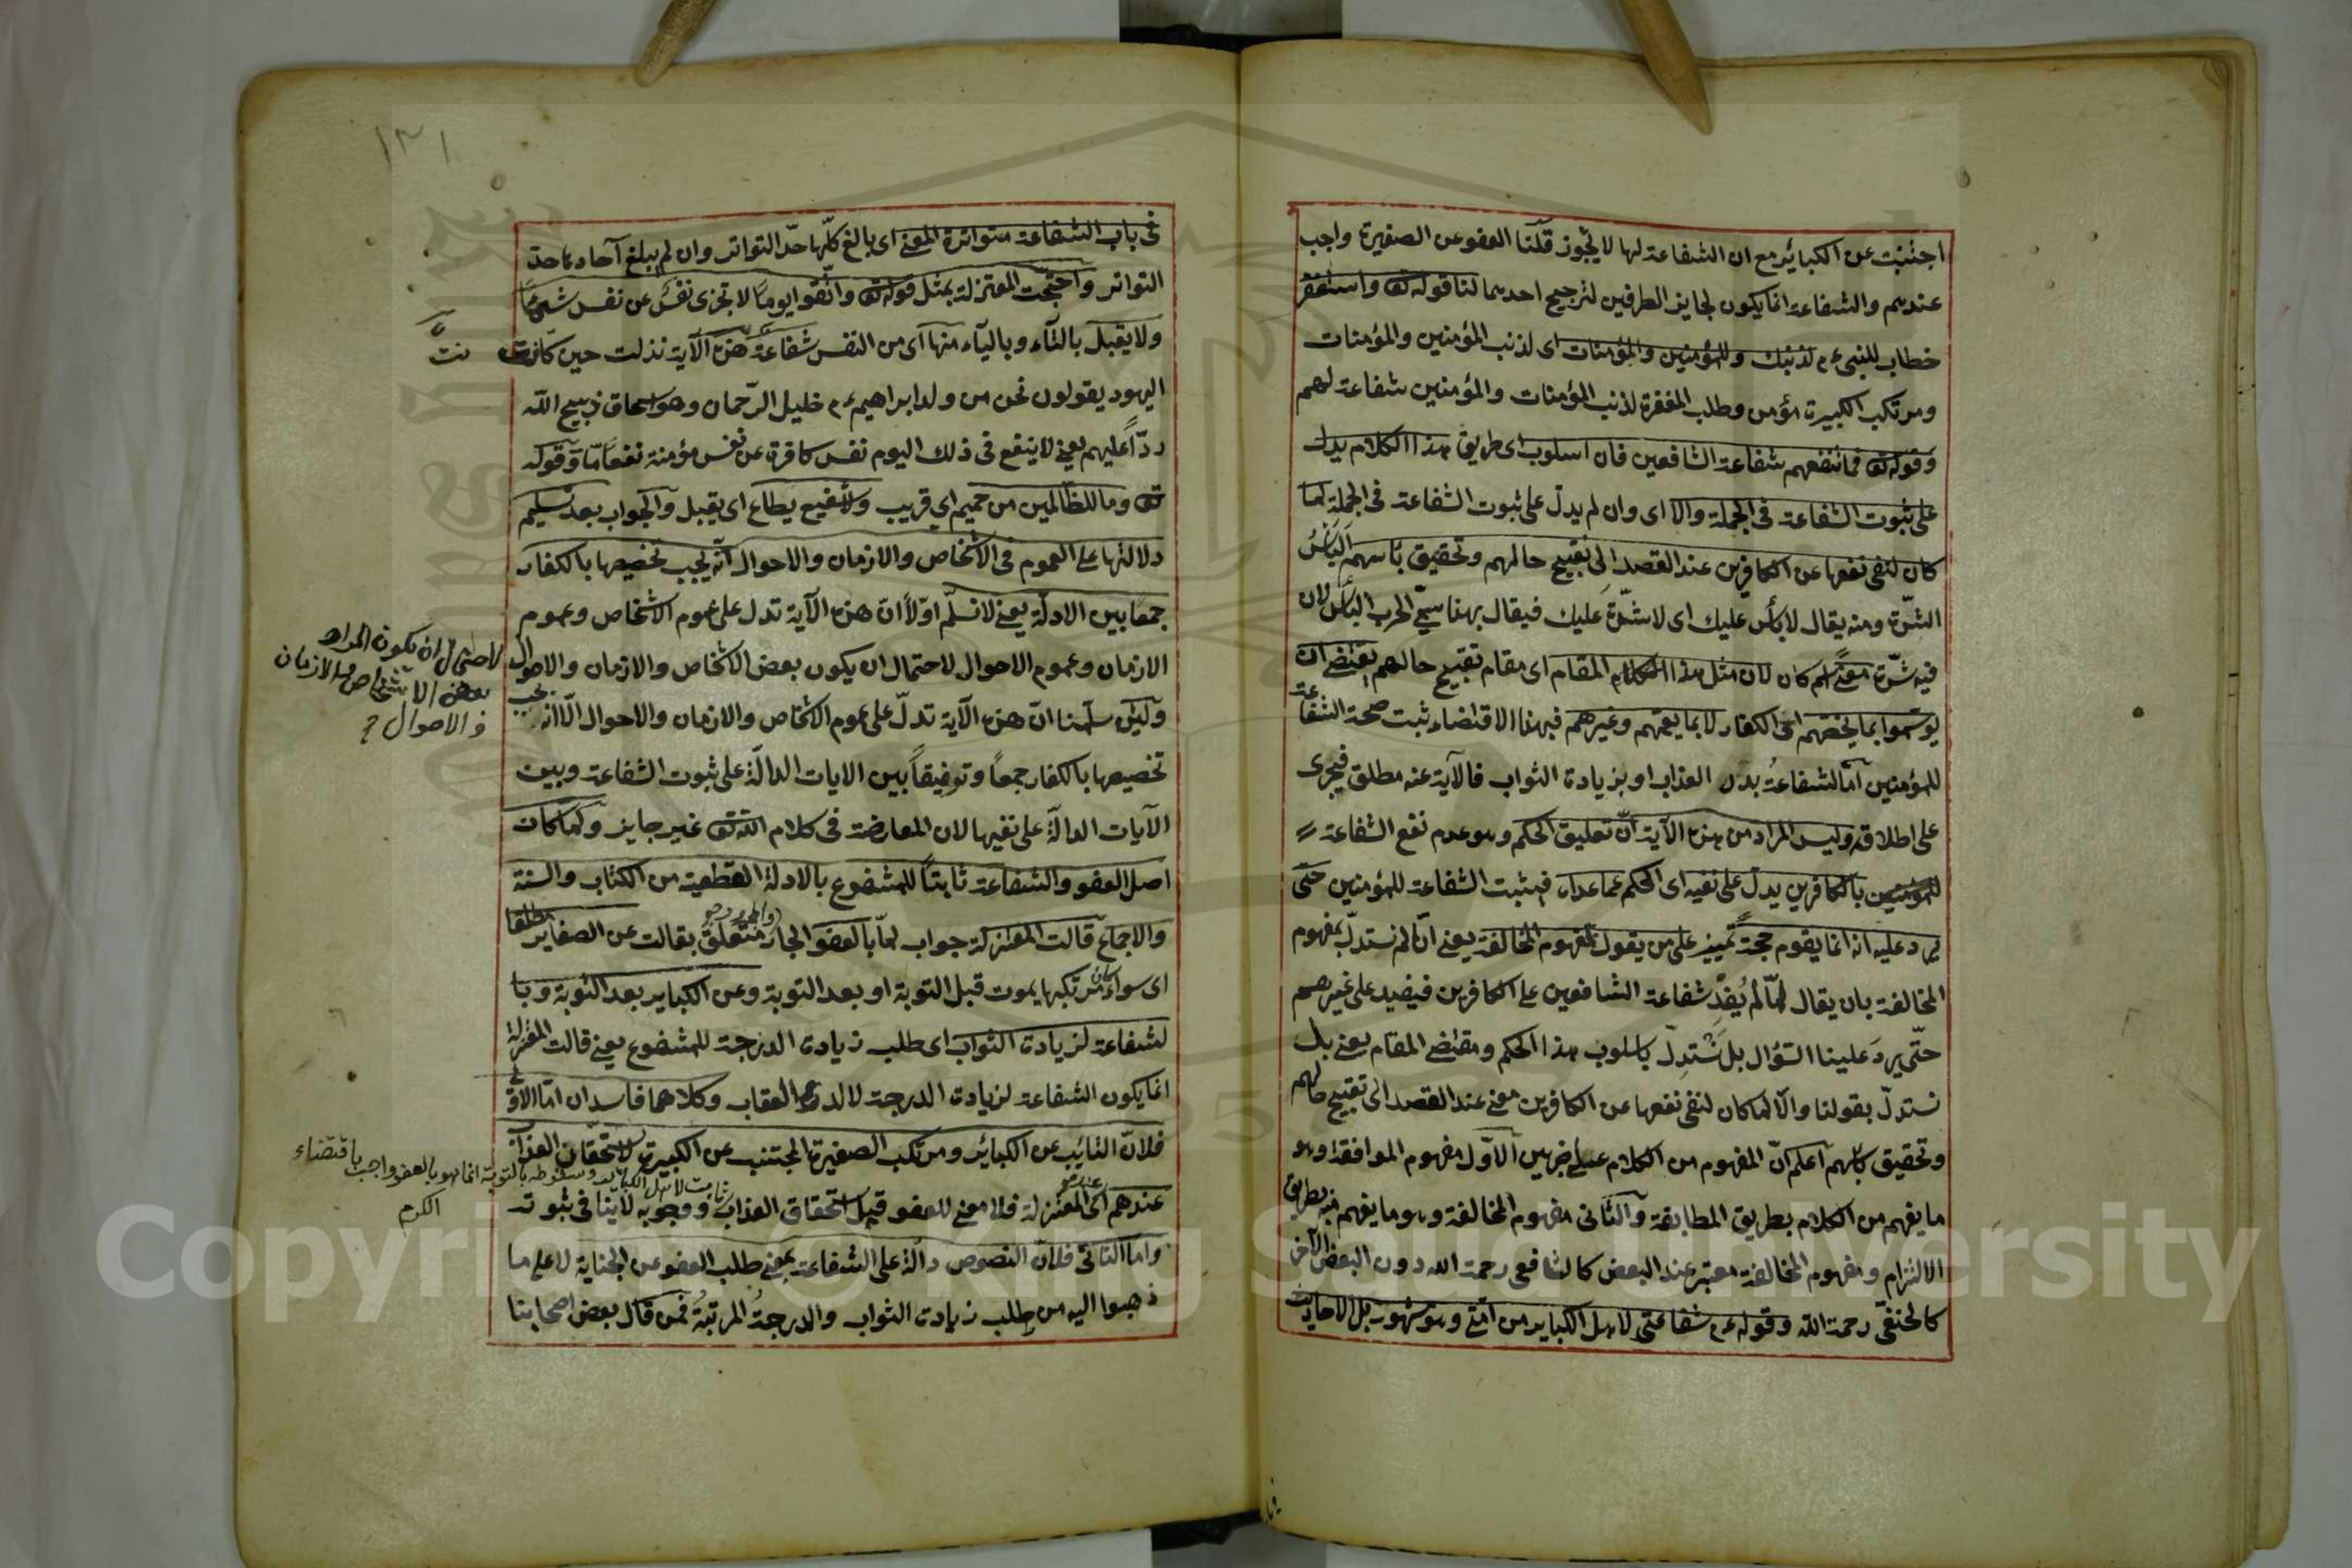 اجتنبت عن الكبائر مع ان الشفاعة لها لا تجوز قلنا العفو عن الصغيرة واجب
عندهم والشفاعة انما يكون لجايز الطرفين لترجيح احدهما لنا قوله تع واستغفر
خطاب للنبي عم لذنبك وللمؤمنين والمؤمنات اى لذنب المؤمنين والمؤمنات
ومرتكب الكبيرة مؤمن وطلب المغفرة لذنب المؤمنات والمؤمنين شفاعة لهم
وقوله تع فما تنفعهم شفاعة الشافعين فان اسلوب اى طريق هذا الكلام يدل
على ثبوت الشفاعة فى الجملة والا اى وان لم يدل على ثبوت الشفاعة فى الجملة لما
كان لنفى نفعها عن الكافرين عند القصد الى تقبيح حالهم وتحقيق بأسهم البأس
الشدّة ومنه يقال لا بأس عليك اى لا شدّة عليك فيقال بهنا سمّى الحرب البأس لان
فيه شدّة معنى اسم كان لان مثل هذا الكلام المقام اى مقام تقبيح حالهم يقتضى ان
يوسموا بما يخصهم اى الكفار لا بما يعمهم وغيرهم فبهذا الاقتضاء ثبت صحة الشفاعة
للمؤمنين اما الشفاعة بدل العذاب او بزيادة الثواب فالآية عنه مطلق فيجرى
على اطلاقه وليس المراد من هذه الآية انّ تعليق الحكم وهو عدم نفع الشفاعة
للمؤمنين بالكافرين يدلّ على نفيه اى الحكم عما عداه فيثبت الشفاعة للمؤمنين حتى
يرد عليه انه انما يقوم حجةً تمييز على من يقول بمفهوم المخالفة يعنى انا لم نستدلّ بمفهوم
المخالفة بان يقال لمّا لم يُفِدْ شفاعة الشافعين على الكافرين فيفيد على غيرهم
حتّى يرد علينا السؤال بل نستدلّ باسلوب هذا الحكم ومقتضى المقام يعنى بل
نستدلّ بقولنا والّا لما كان لنفى نفعها عن الكافرين معنى عند القصد الى تقبيح حالهم
وتحقيق بأسهم اعلم انّ المفهوم من الكلام على ضربين الاوّل مفهوم الموافقة وهو
ما يفهم من الكلام بطريق المطابقة والثانى مفهوم المخالفة وهو ما يفهم فيه بطريق
الالتزام ومفهوم المخالفة معتبر عند البعض كالشافعى رحمة الله دون البعض الآخر
كالحنفى رحمة الله وقوله عم شفاعتى لاهل الكباير من امتى وهو مشهور بل الاحاديث
١٣١
فى باب الشفاعة متواترة المعنى اى بالغ كلّها حدّ التواتر وان لم يبلغ آحادها حدّ
التواتر واحتجّت المعتزلة بمثل قوله تع واتقوا يوماً لا تجزى نفسٌ عن نفس شيئاً
ولا يقبل بالتاء وبالياء منها اى من النفس شفاعة هذه الآية نزلت حين كانت
اليهود يقولون نحن من ولد ابراهيم عم خليل الرّحمان وهو اسحاق ذبيح الله
ردّاً عليهم يعنى لا ينفع فى ذلك اليوم نفس كافرة عن نفس مؤمنة نفعاً مّا وقوله
تع وما للظالمين من حميم اى قريب ولا شفيع يطاع اى يقبل والجواب بعد تسليم
دلالتها على العموم فى الاشخاص والازمان والاحوال انّه يجب تخصيصها بالكفار
جمعا بين الادلّة يعنى لا نسلّم اوّلاً انّ هذه الآية تدل على عموم الاشخاص وعموم
الازمان وعموم الاحوال لاحتمال ان يكون بعض الاشخاص والازمان والاحوال
ولئن سلّمنا انّ هذه الآية تدلّ على عموم الاشخاص والازمان والاحوال الّا انه يجب
تخصيصها بالكفار جمعاً وتوفيقاً بين الايات الدالّة على ثبوت الشفاعة وبين
الآيات الدالّة على نفيها لان المعارضة فى كلام الله تع غير جايز ولمّا كان
اصل العفو والشفاعة ثابتاً للمشفوع بالادلة القطعية من الكتاب والسنة
والاجماع قالت المعتزلة جواب لمّا بالعفو الجار والمجرور متعلّق بقالت عن الصغاير مطلقا
اى سواء كان مرتكبها يموت قبل التوبة او بعد التوبة وعن الكباير بعد التوبة وبا
لشفاعة لزيادة الثواب اى طلب زيادة الدرجة للمشفوع يعنى قالت المعتزلة
انما يكون الشفاعة لزيادة الدرجة لا لدفع العقاب وكلاهما فاسدان امّا الاوّل
فلانّ التائب عن الكبائر ومرتكب الصغيرة المجتنب عن الكبيرة لا يستحقّان العذاب
عندهم اى المعتزلة فلا معنى للعفو قيل استحقاق العذاب ووجوبه لا ينافى ثبوته
واما الثانى فلانّ النصوص دالّة على الشفاعة بمعنى طلب العفو عن الجناية لا على ما
ذهبوا اليه من طلب زيادة الثواب والدرجةُ المرتبةُ فمن قال بعض اصحابنا
نت
لاحتمال ان يكون المراد
بعض الاشخاص والازمان
والاحوال
وسقوطه بالتوبة انما هو بالعفو واجب باقتضاء
الكرم
Copyright © King Saud University